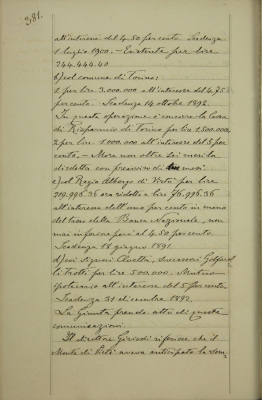 381.
all'interesse del 4.50 per cento. Scadenza
1 luglio 1900. — Esistente per lire
744.444.40
b) col comune di Torino:
1 per lire 3.000.000 all'interesse del 4.75
per cento. Scadenza 14 ottobre 1892.
In questa operazione è concorsa la Cassa
di Risparmio di Torino per lire 1.500.000,
2 per lire 1.000.000 all'interesse del 5 per
cento, — Mora non oltre sei mesi la
disdetta con preavviso di tre mesi.
c) col Regio Albergo di Virtù per lire
219.996.36 ora ridotto a lire 76.996.36
all'interesse dell'uno per cento in meno
del tasso della Banca Nazionale, non
mai inferiore però al 4.50 per cento.
Scadenza 18 giugno 1891.
d) coi signori successori
Trotti per lire 500.000. Mutuo
ipotecario all'interesse del 5 per cento.
Scadenza 31 dicembre 1892.
La Giunta prende atto di queste
comunicazioni.
Il direttore riferisce che il
Monte di Pietà aveva anticipato la som-